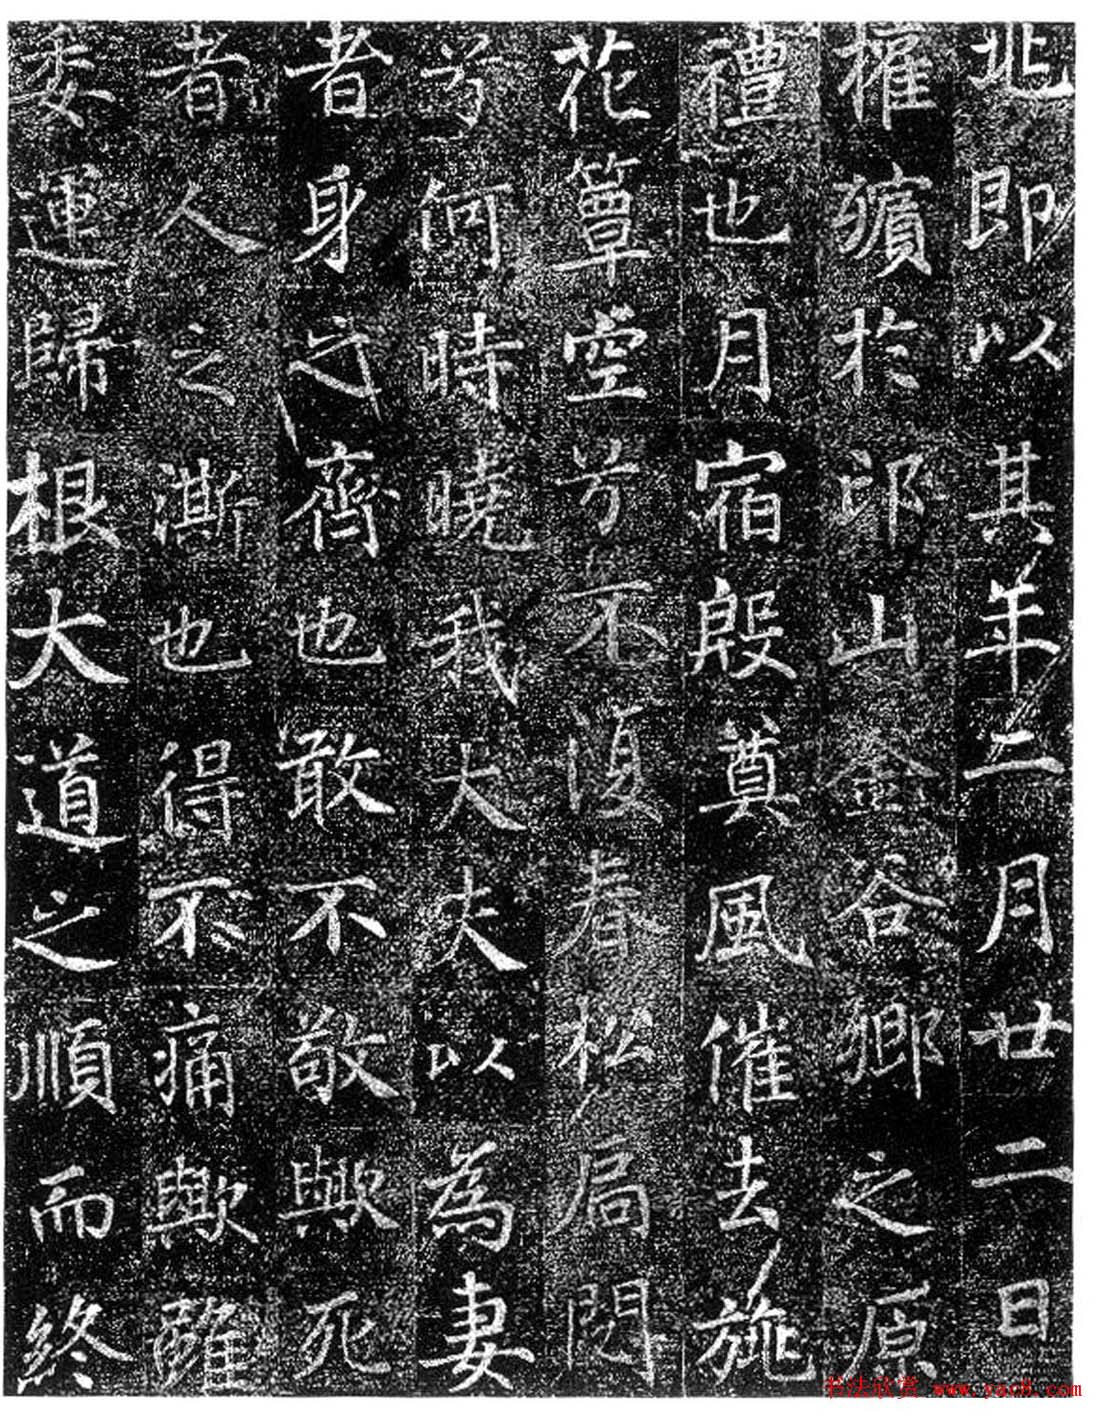 北即以其年二月廿二日
權殯於邙山金谷鄉之原
禮也月宿殷奠風催去旐
花簟空兮不復春松扃閇
兮何時曉我大夫以為妻
者身之齊也敢不敬歟死
者人之澌也得不痛歟雖
委運歸根大道之順而終
书法欣赏 www.yac8.com